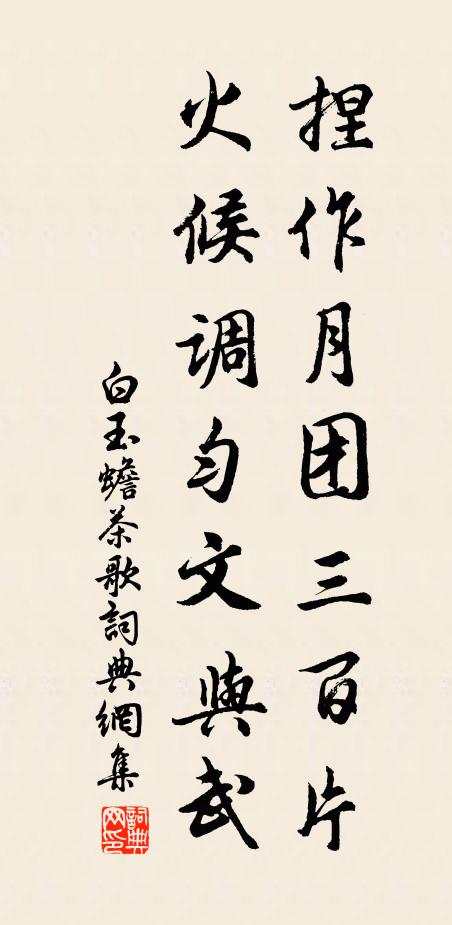 捏作月团三百片
火候调匀文與武
白玉蟾茶歌詞典網集
詞典
网印